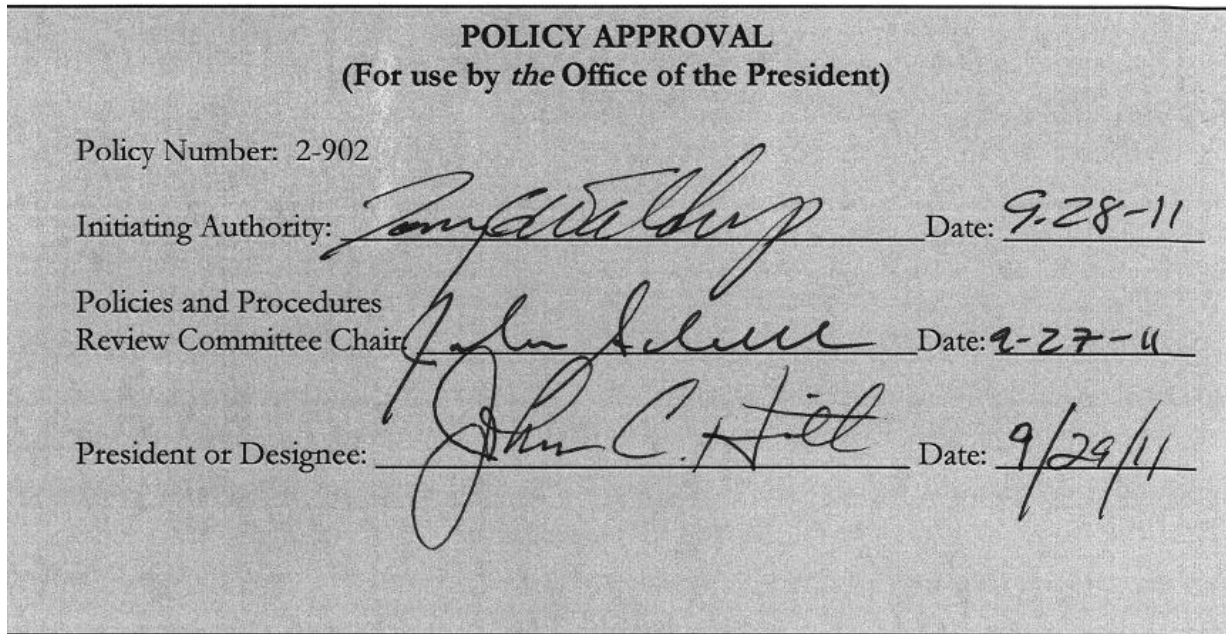 POLICY APPROVAL
(For use by the Office of the President)
Policy Number: 2-902
Initiating Authority: Date: 9-28-11
Policies and Procedures
Review Committee Chair: John Date: 9-27-11
President or Designee: John C. Hitt Date: 9/29/11